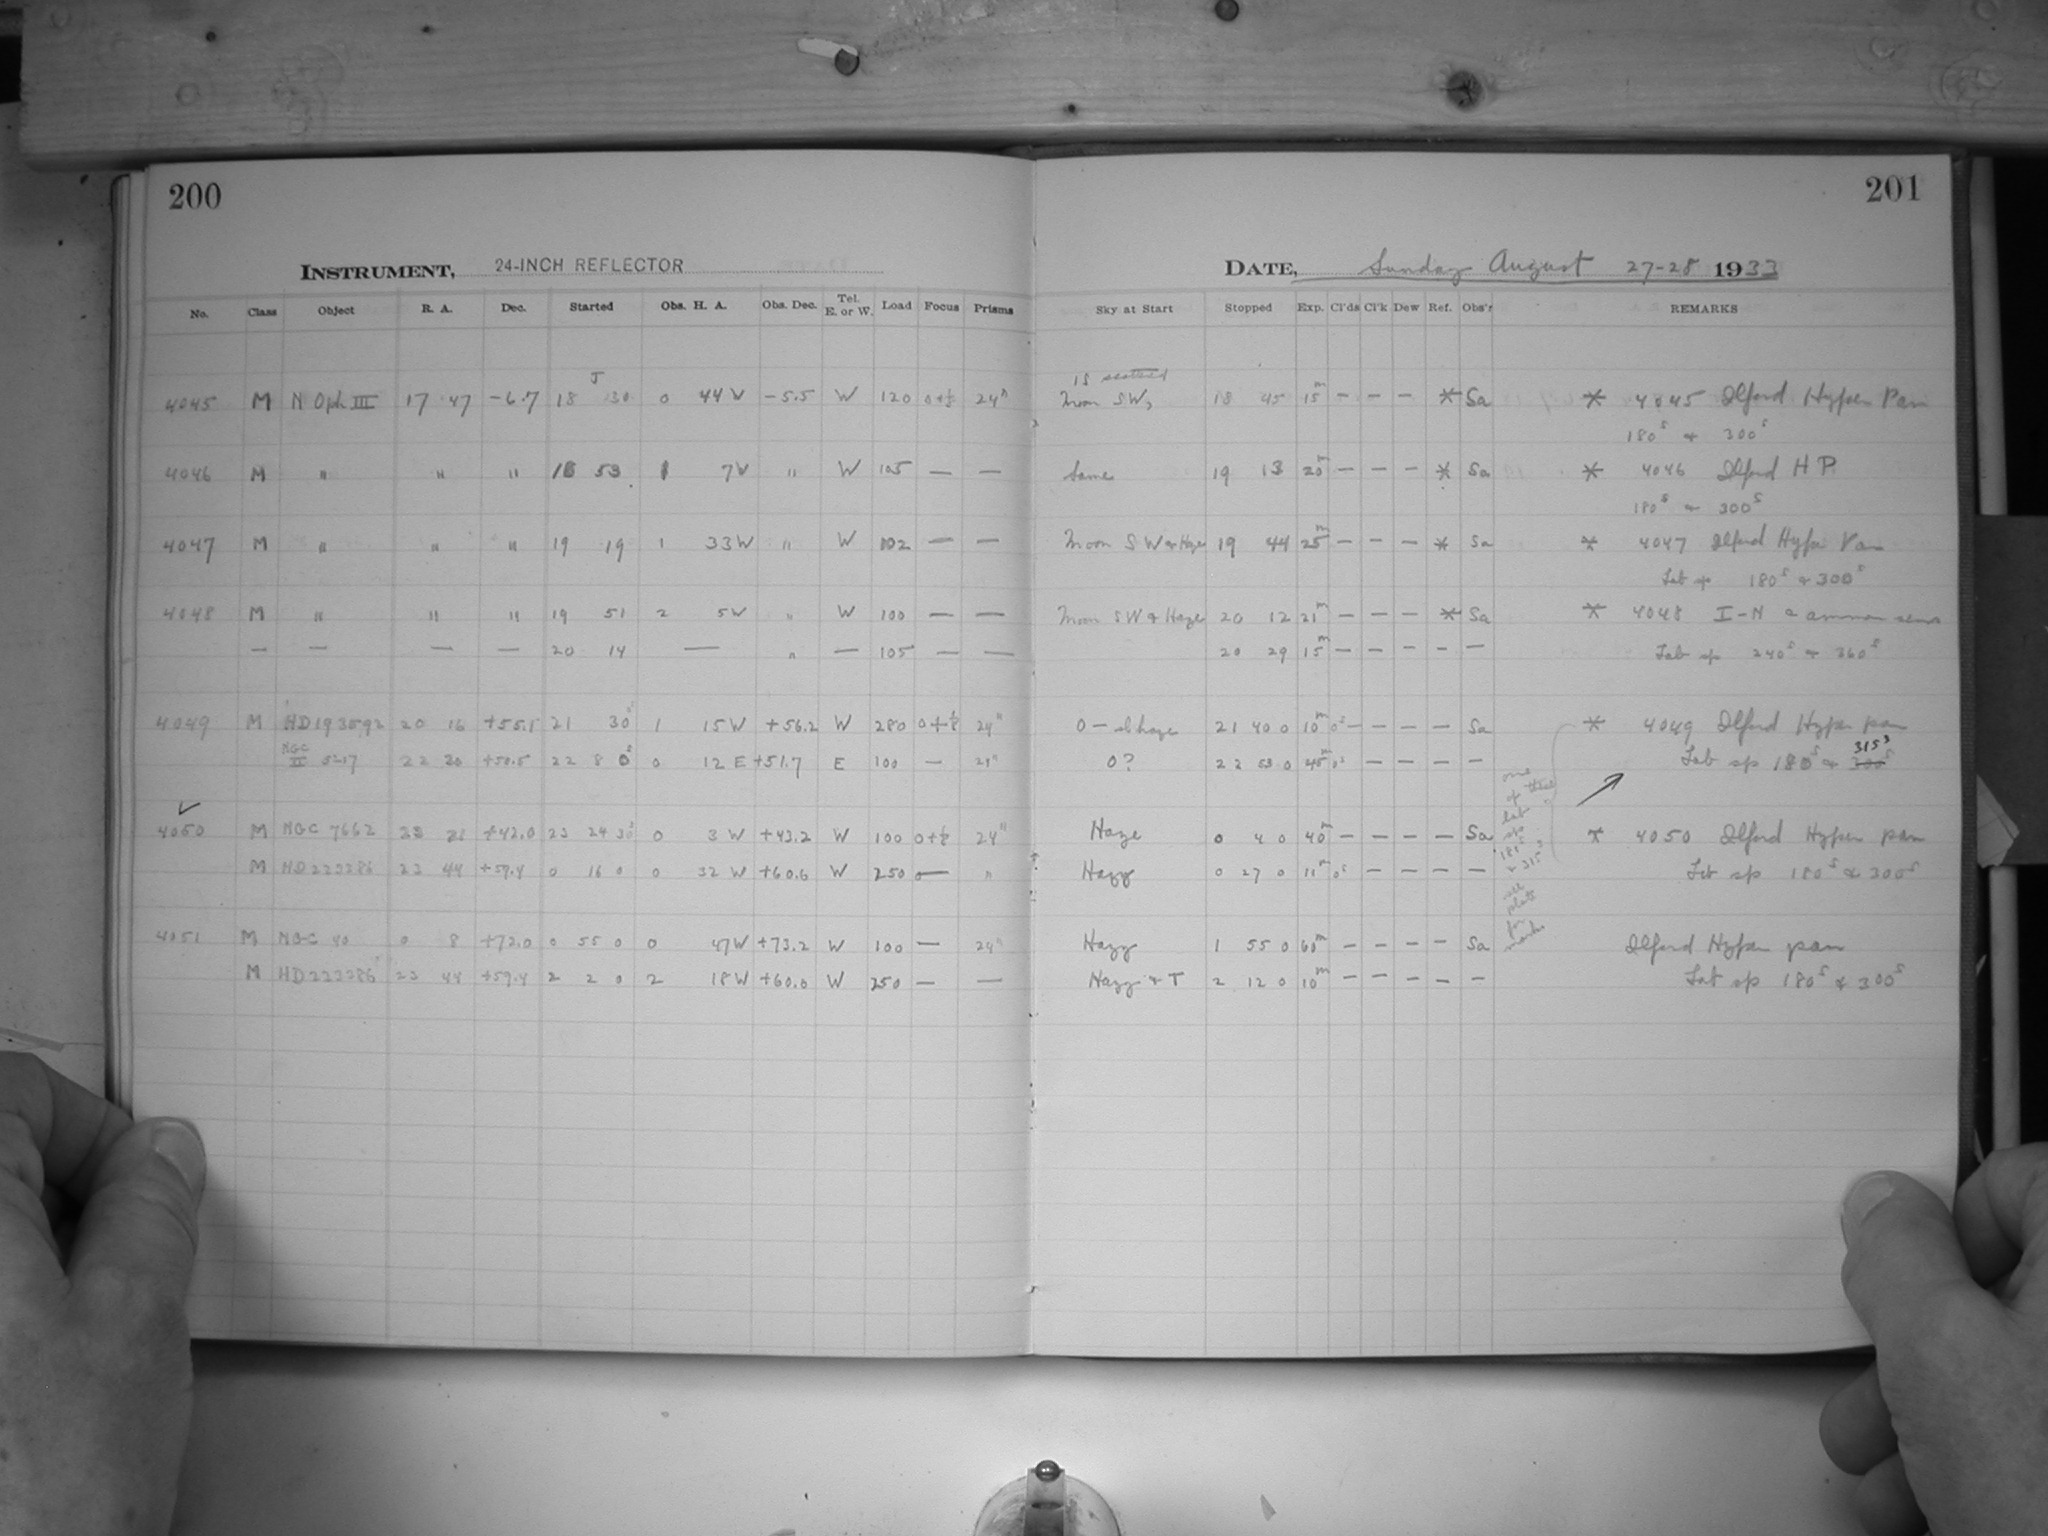 200
INSTRUMENT, 24-INCH REFLECTOR
No. Class Object R. A. Dec. Started Obs. H. A. Obs. Dec. Tel. E. or W. Load Focus Prisms
4045 M N Oph III 17 47 -6.7 18 30 0 44 W -5.5 W 120 24"
4046 M " " " 18 53 1 7W " W 105 — —
4047 M " " " 19 19 1 33W " W 102 — —
4048 M " " " 19 51 2 5W " W 100 — —
— — — — 20 14 — " — 105 — —
4049 M HD193592 20 16 +55.1 21 30 1 15 W +56.2 W 280 0+1/8 24"
22 20 +50.5 22 8 0 0 12 E +51.7 E 100 — 24"
4050 M NGC 7662 23 21 +42.0 23 24 30 0 3 W +43.2 W 100 0+1/8 24"
M 23 44 +59.4 0 16 0 0 32 W +60.6 W 250 — "
4051 M NGC 40 0 8 +72.0 0 55 0 0 47W +73.2 W 100 — 24"
M 23 44 +59.4 2 2 0 2 18W +60.0 W 250 — —
201
DATE, Sunday August 27-28 1933
Sky at Start Stopped Exp. Cl'ds Cl'k Dew Ref. Obs'r REMARKS
Moon SW, 18 45 15m — — — * Sa * 4045 Ilford Hyper Pan
180s & 300s
Same 19 13 20m — — — * Sa * 4046 Ilford H P.
180s & 300s
Moon S W & Haze 19 44 25m — — — * Sa * 4047 Ilford Hyper Pan
Lab sp 180s & 300s
Moon SW & Haze 20 12 21m — — — * Sa * 4048 I-N
20 29 15m — — — — — Lab sp 240s & 360s
0 — sl haze 21 40 0 10m — — — Sa * 4049 Ilford Hyper pan
315s
0? 22 53 0 45m — — — — Lab sp 180s & 300s
one of these Lab sp 180s & 315s see plate for marks
Haze 0 4 0 40m — — — — Sa * 4050 Ilford Hyper pan
Hazy 0 27 0 11m — — — — Lab sp 180s & 300s
Hazy 1 55 0 60m — — — — Sa Ilford Hyper pan
Hazy & T 2 12 0 10m — — — — — Lab sp 180s & 300s